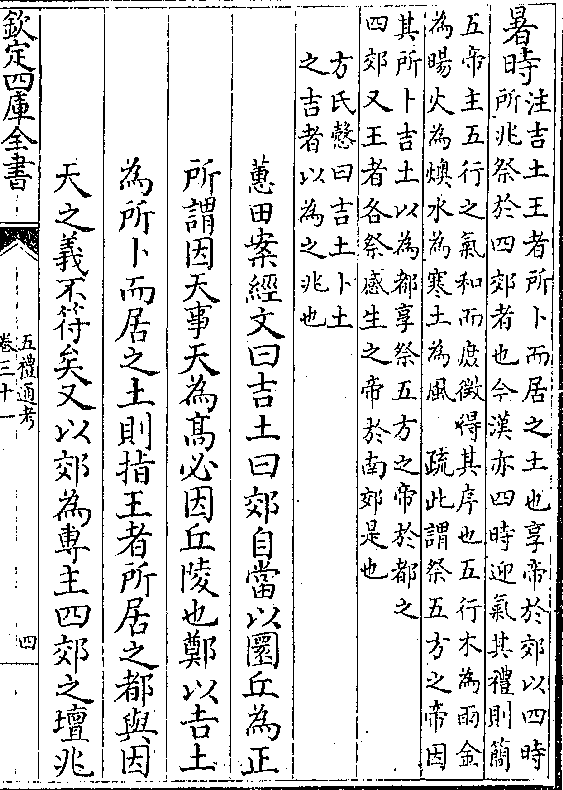 暑時
注吉土王者所卜而居之土也享帝於郊以四時
所兆祭於四郊者也今漢亦四時迎氣其禮則簡
五帝主五行之氣和而庶徴得其序也五行木為雨金
為暘火為燠水為寒土為風　疏此謂祭五方之帝因
其所卜吉土以為都享祭五方之帝於都之
四郊又王者各祭感生之帝於南郊是也
方氏慤曰吉土卜土
之吉者以為之兆也
蕙田案經文曰吉土曰郊自當以圜丘為正
所謂因天事天為高必因丘陵也鄭以吉土
為所卜而居之土則指王者所居之都與因
天之義不符矣又以郊為專主四郊之壇兆
欽定四庫全書
五禮通考
卷三十一
四